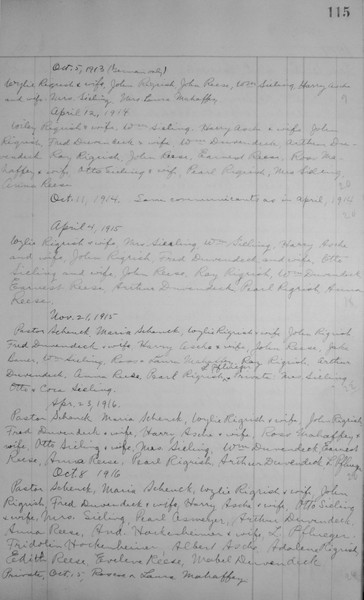 115
Oct. 5, 1913
Wylie Rigrish & wife, John Rigrish, John Reese, Wm Sieling, Harry Aschs
and wife, Mrs. Sieling, Mrs Laura Mahaffey 9
April 12, 1914
Wiley Rigrish & wife, Wm Sieling, Harry Aschs & wife, John
Rigrish, Fred Duvendeck & wife, Wm Duvendeck, Arthur Duv-
endeck, Ray Rigrish, John Reese, Earnest Reese, Ross Ma-
haffey & wife, Otto Sieling & wife, Pearl Rigrish, Mrs Sieling,
Anna Reese
Oct. 11, 1914. Same communicants as in April, 1914
April 4, 1915
Wylie Rigrish & wife, Mrs. Sieling, Wm Sieling, Harry Aschs
and wife, John Rigrish, Fred Duvendeck and wife, Otto
Sieling and wife, John Reese, Ray Rigrish, Wm Duvendeck
Earnest Reese, Arthur Duvendeck, Pearl Rigrish, Anna
Reese.
Nov. 21, 1915
Pastor Schenck, Maria Schenck, Wylie Rigrish & wife, John Rigrish
Fred Duvendeck & wife, Harry Aschs & wife, John Reese, John
Wm Sieling, Ross & Laura Mahaffey, Ray Rigrish, Arthur
Duvendeck, Anna Reese, Pearl Rigrish, L. Pflueger Private: Mrs Sieling
Otto & Cora Sieling.
Apr. 23, 1916.
Pastor Schenck, Maria Schenck, Wylie Rigrish & wife, John Rigrish,
Fred Duvendeck & wife, Harry Aschs & wife, Ross Mahaffey &
wife, Otto Sieling & wife, Mrs. Sieling, Wm Duvendeck, Earnest
Reese, Anna Reese, Pearl Rigrish, Arthur Duvendeck L. Pflueger
Oct 8 1916
Pastor Schenck, Maria Schenck, Wylie Rigrish & wife, John
Rigrish, Fred Duvendeck & wife, Harry Aschs & wife, Otto Sieling
& wife, Mrs. Sieling, Pearl Arthur Duvendeck,
Anna Reese, And. Hockenheimer & wife, L. Pflueger
Fridolin Hockenheimer Albert Aschs Adaline Rigrish
Edith Reese Evelene Reese, Mabel Duvendeck
Private, Oct. 15, Roscoe & Laura Mahaffey